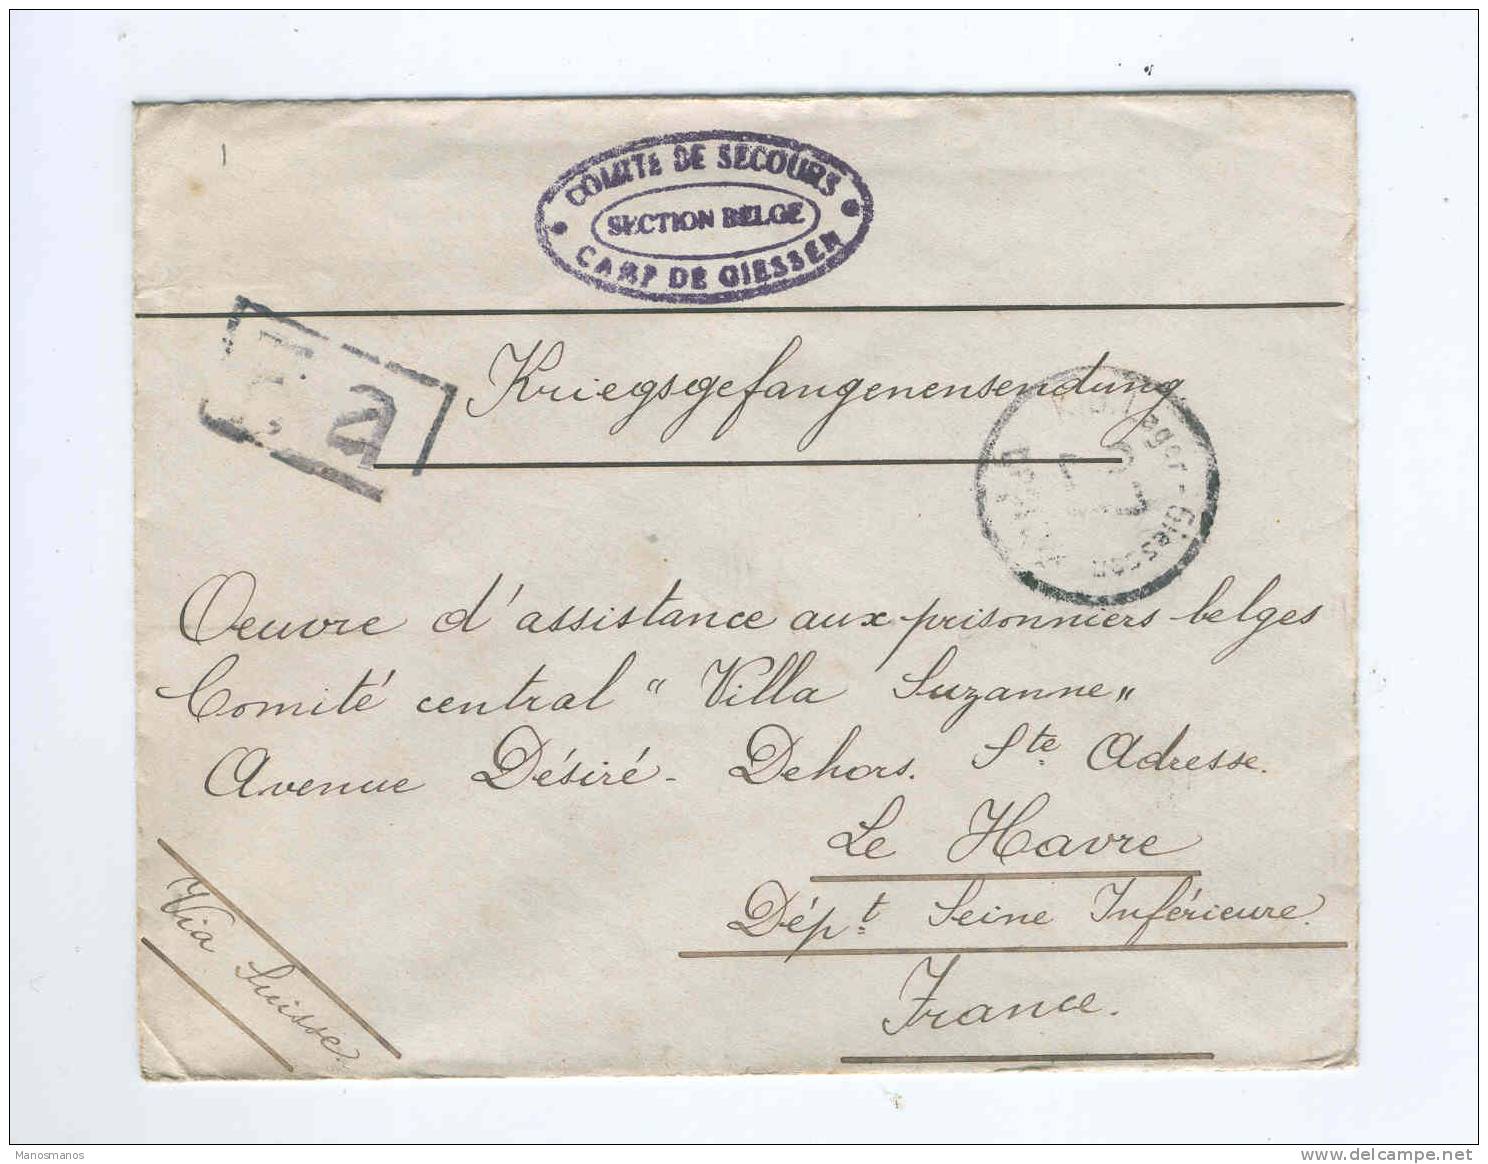 1
COMITÉ DE SECOURS
SECTION BELGE
CAMP DE GIESSEN
a
Kriegsgefangenensendung
lager - Giessen
Oeuvre d'assistance aux prisonniers belges
Comité central "Villa Suzanne"
Avenue Désiré - Dehors. Ste. Adresse.
Le Havre
Dépt. Seine Inférieure.
France.
Via Suisse.
Manosmanos
www.delcampe.net